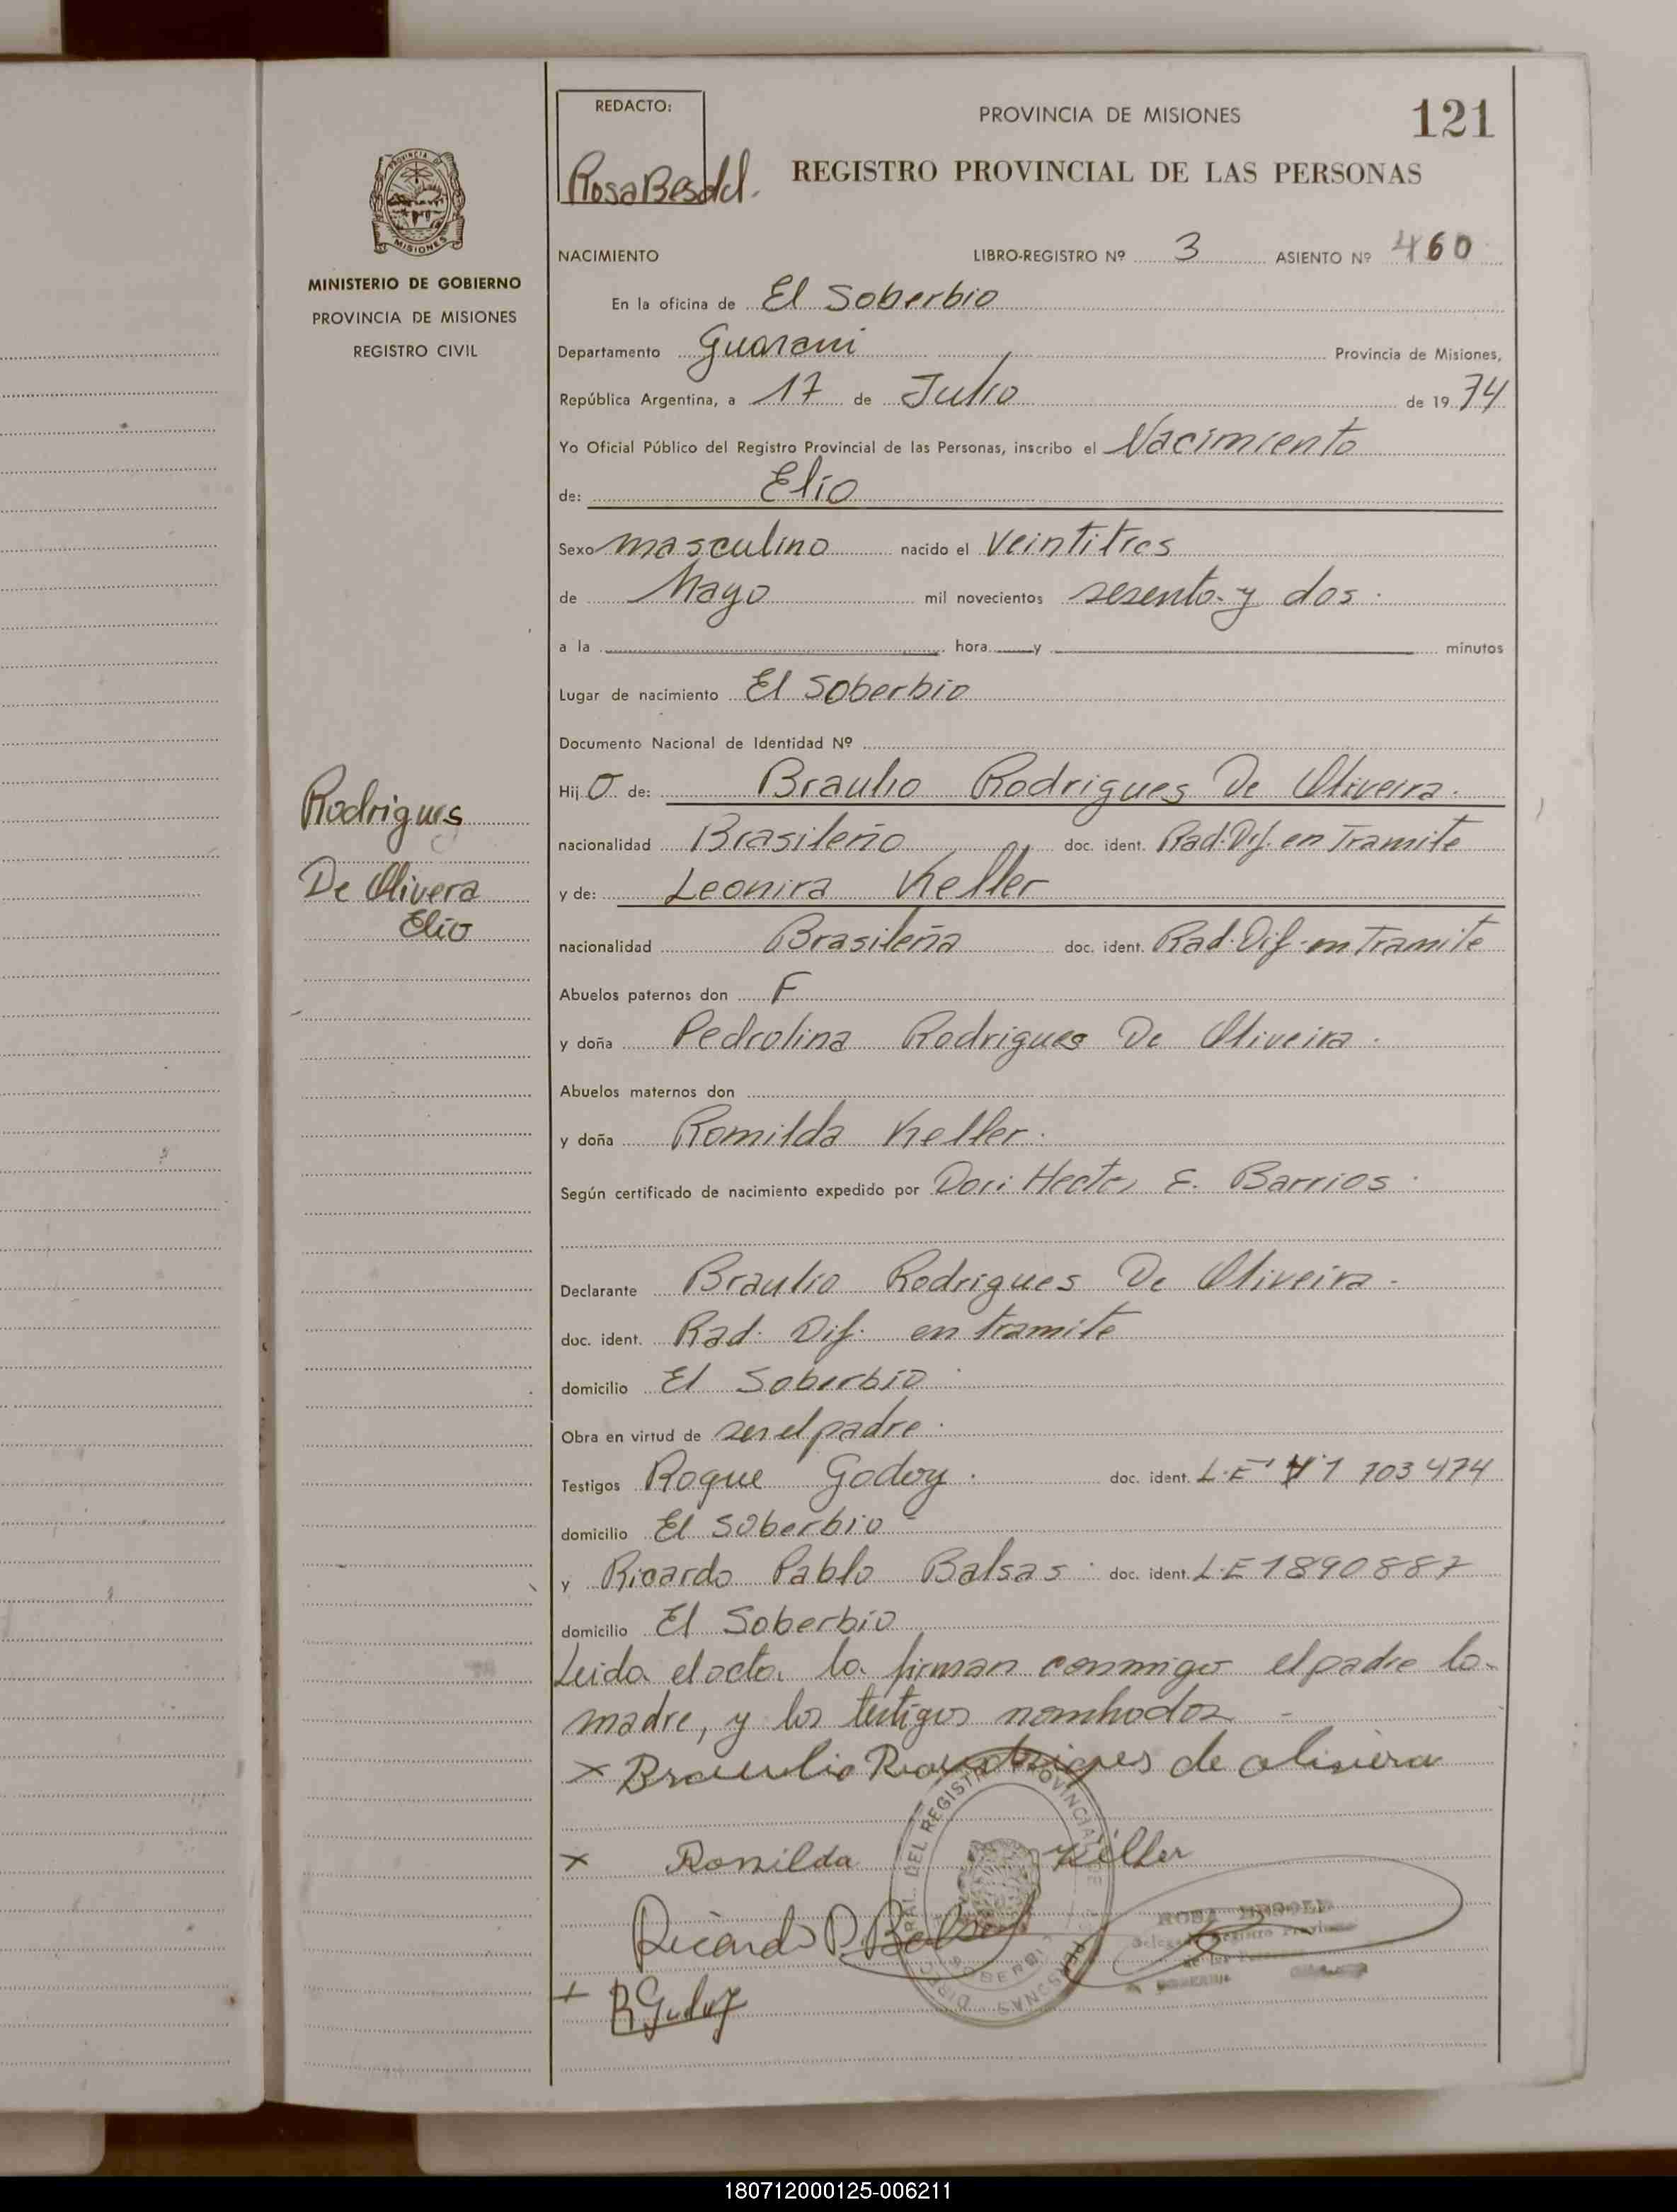 REDACTO:
PROVINCIA DE MISIONES
121
Rosa Besold.
REGISTRO PROVINCIAL DE LAS PERSONAS
PROVINCIA DE
MISIONES
MINISTERIO DE GOBIERNO
PROVINCIA DE MISIONES
REGISTRO CIVIL
NACIMIENTO LIBRO-REGISTRO Nº 3 ASIENTO Nº 460
En la oficina de El Soberbio
Departamento Guarani Provincia de Misiones,
República Argentina, a 17 de Julio de 19 74
Yo Oficial Público del Registro Provincial de las Personas, inscribo el Nacimiento
de: Elio
Sexo masculino nacido el veintitres
de Mayo mil novecientos sesenta y dos.
a la hora y minutos
Lugar de nacimiento El Soberbio
Documento Nacional de Identidad Nº
Hij o de: Braulio Rodrigues De Oliveira.
nacionalidad Brasileño doc. ident. Rad. Dif. en Tramite
y de: Leonira Keller
nacionalidad Brasileña doc. ident. Rad. Dif. en Tramite
Abuelos paternos don F
y doña Pedrolina Rodrigues De Oliveira.
Abuelos maternos don
y doña Romilda Keller.
Según certificado de nacimiento expedido por Hector E. Barrios.
Declarante Braulio Rodrigues De Oliveira.
doc. ident. Rad. Dif. en tramite
domicilio El Soberbio.
Obra en virtud de ser el padre.
Testigos Roque Godoy. doc. ident. L.E 1 703 474
domicilio El Soberbio
y Ricardo Pablo Balsas. doc. ident. L.E 1890887
domicilio El Soberbio
Leida el acta, la firman conmigo el padre la
madre, y los testigos nombrados
x Braulio Rodrigues de olivera
x Romilda Keller
Ricardo P. Balsas
+ R Godoy
DEL REGISTRO PROVINCIAL DE PERSONAS
SOBERBIO
ROSA BESOLD
Rodrigues
De Olivera
Elio
180712000125-006211